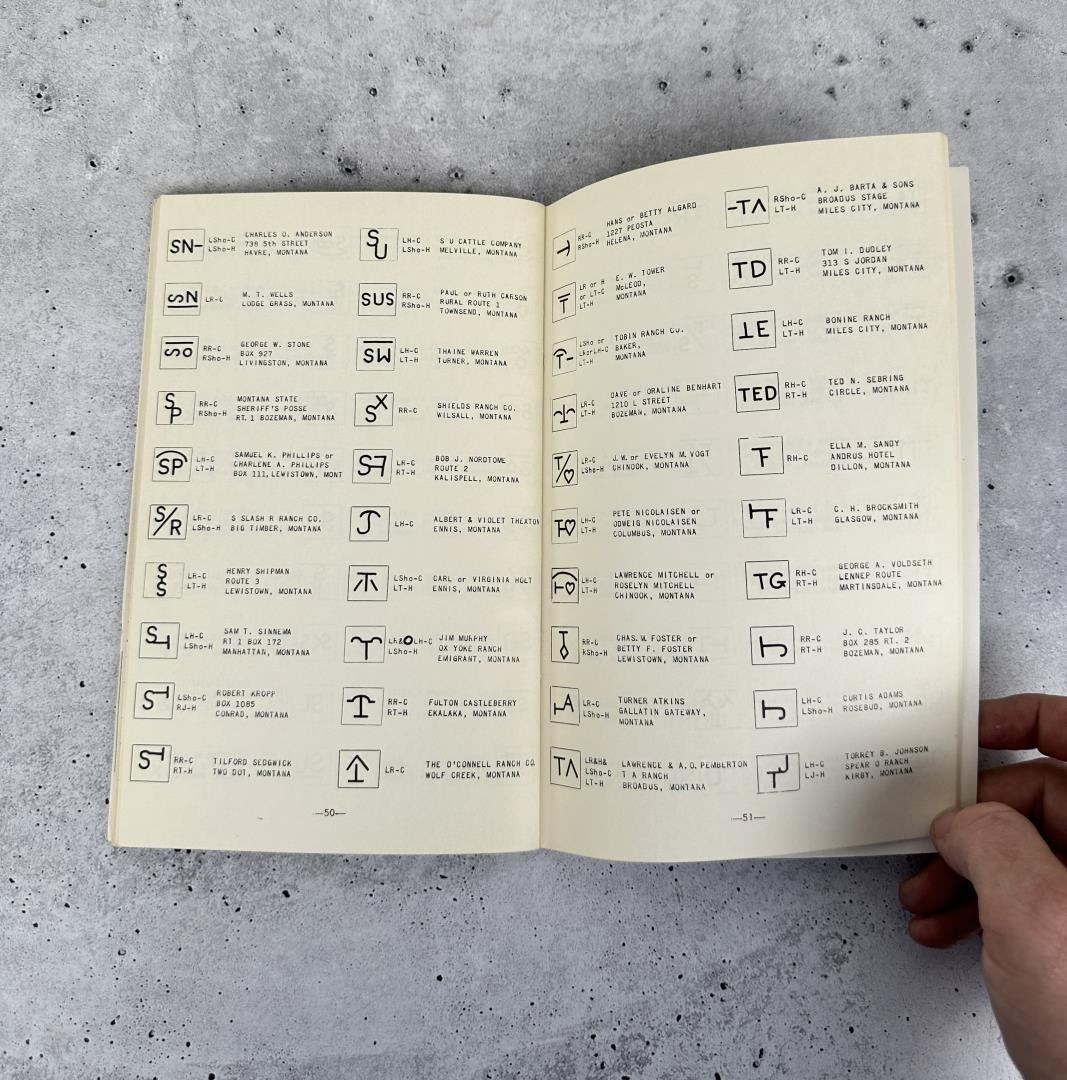 SN-
LSho-C
LSho-H
CHARLES O. ANDERSON
738 5th STREET
HAVRE, MONTANA
SN
LR-C
W. T. WELLS
LODGE GRASS, MONTANA
SO
RR-C
RSho-H
GEORGE W. STONE
BOX 927
LIVINGSTON, MONTANA
SP
RR-C
RSho-H
MONTANA STATE
SHERIFF'S POSSE
RT. 1 BOZEMAN, MONTANA
SP
LH-C
LT-H
SAMUEL K. PHILLIPS or
CHARLENE A. PHILLIPS
BOX 111, LEWISTOWN, MONT
S/R
LR-C
LSho-H
S SLASH R RANCH CO.
BIG TIMBER, MONTANA
SS
LR-C
LT-H
HENRY SHIPMAN
ROUTE 3
LEWISTOWN, MONTANA
S
LH-C
LSho-H
SAM T. SINNEMA
RT 1 BOX 172
MANHATTAN, MONTANA
S
LSho-C
RJ-H
ROBERT KROPP
BOX 1085
CONRAD, MONTANA
S
RR-C
RT-H
TILFORD SEDGWICK
TWO DOT, MONTANA
SU
LH-C
LSho-H
S U CATTLE COMPANY
MELVILLE, MONTANA
SUS
RR-C
RSho-H
PAUL or RUTH CARSON
RURAL ROUTE 1
TOWNSEND, MONTANA
SW
LH-C
LT-H
THAINE WARREN
TURNER, MONTANA
SX
RR-C
SHIELDS RANCH CO.
WILSALL, MONTANA
S
LR-C
RT-H
BOB J. NORDTOME
ROUTE 2
KALISPELL, MONTANA
LH-C
ALBERT & VIOLET THEXTON
ENNIS, MONTANA
LSho-C
LT-H
CARL or VIRGINIA HOLT
ENNIS, MONTANA
LR&OLH-C
LSho-H
JIM MURPHY
OX YOKE RANCH
EMIGRANT, MONTANA
RR-C
RT-H
FULTON CASTLEBERRY
EKALAKA, MONTANA
LR-C
THE O'CONNELL RANCH CO.
WOLF CREEK, MONTANA
—50—
RR-C
RSho-H
HANS or BETTY ALGARD
1227 PEOSTA
HELENA, MONTANA
T
LR or H
or LT-C
LT-H
E. W. TOWER
McLEOD,
MONTANA
T-
LSho or
LRorLH-C
LT-H
TOBIN RANCH Co.
BAKER,
MONTANA
LR-C
LT-H
DAVE or ORALINE BENHART
1210 L STREET
BOZEMAN, MONTANA
T/♡
LR-C
LSho-H
J. W. or EVELYN M. VOGT
CHINOOK, MONTANA
T♡
LH-C
LT-H
PETE NICOLAISEN or
ODWEIG NICOLAISEN
COLUMBUS, MONTANA
♡
LH-C
LT-H
LAWRENCE MITCHELL or
ROSELYN MITCHELL
CHINOOK, MONTANA
RR-C
RSho-H
CHAS. W. FOSTER or
BETTY F. FOSTER
LEWISTOWN, MONTANA
A
LR-C
LSho-H
TURNER ATKINS
GALLATIN GATEWAY,
MONTANA
TΛ
LR&H&
LSho-C
LT-H
LAWRENCE & A. O. PEMBERTON
T A RANCH
BROADUS, MONTANA
-TΛ
RSho-C
LT-H
A. J. BARTA & SONS
BROADUS STAGE
MILES CITY, MONTANA
TD
RR-C
LT-H
TOM I. DUDLEY
313 S JORDAN
MILES CITY, MONTANA
TE
LH-C
LT-H
BONINE RANCH
MILES CITY, MONTANA
TED
RH-C
RT-H
TED N. SEBRING
CIRCLE, MONTANA
RH-C
ELLA M. SANDY
ANDRUS HOTEL
DILLON, MONTANA
F
LR-C
LT-H
C. H. BROCKSMITH
GLASGOW, MONTANA
TG
RH-C
RT-H
GEORGE A. VOLDSETH
LENNEP ROUTE
MARTINSDALE, MONTANA
RR-C
RT-H
J. C. TAYLOR
BOX 285 RT. 2
BOZEMAN, MONTANA
LH-C
LSho-H
CURTIS ADAMS
ROSEBUD, MONTANA
TJ
LH-C
LJ-H
TORREY B. JOHNSON
SPEAR O RANCH
KIRBY, MONTANA
—51—